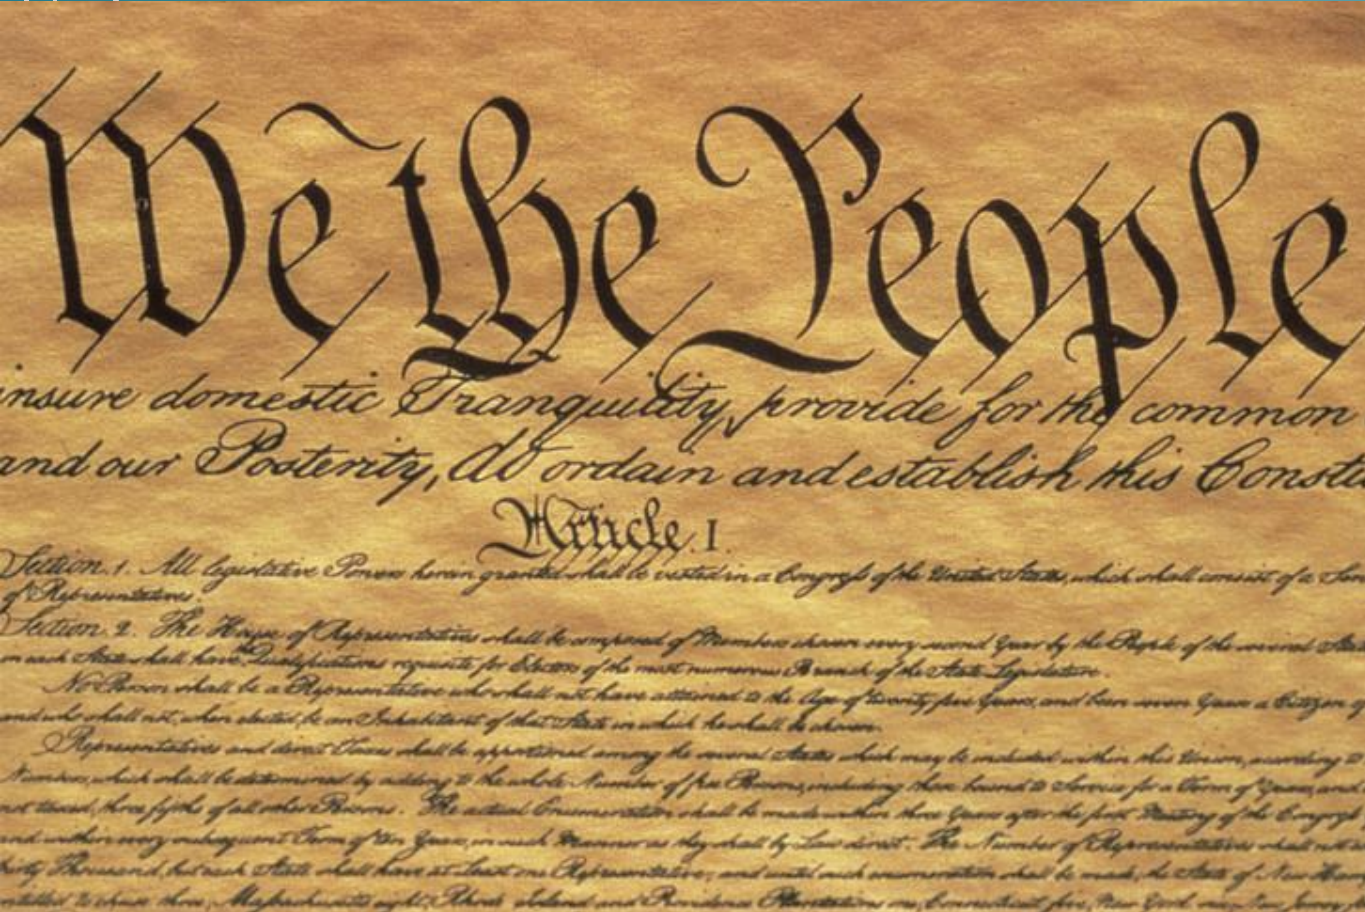 We the People
insure domestic Tranquility, provide for the common
and our Posterity, do ordain and establish this Constit
Article. I.
Section. 1. All legislative Powers herein granted shall be vested in a Congress of the United States, which shall consist of a Sen
of Representatives.
Section. 2. The House of Representatives shall be composed of Members chosen every second Year by the People of the several Stat
in each State shall have the Qualifications requisite for Electors of the most numerous Branch of the State Legislature.
No Person shall be a Representative who shall not have attained to the Age of twenty five Years, and been seven Years a Citizen of
and who shall not, when elected, be an Inhabitant of that State in which he shall be chosen.
Representatives and direct Taxes shall be apportioned among the several States which may be included within this Union, according to
Numbers, which shall be determined by adding to the whole Number of free Persons, including those bound to Service for a Term of Years, and
not taxed, three fifths of all other Persons. The actual Enumeration shall be made within three Years after the first Meeting of the Congress
and within every subsequent Term of ten Years, in such Manner as they shall by Law direct. The Number of Representatives shall not
thirty Thousand, but each State shall have at Least one Representative; and until such enumeration shall be made, the State of New Ham
entitled to chuse three, Massachusetts eight, Rhode Island and Providence Plantations one, Connecticut five, New York six, New Jersey